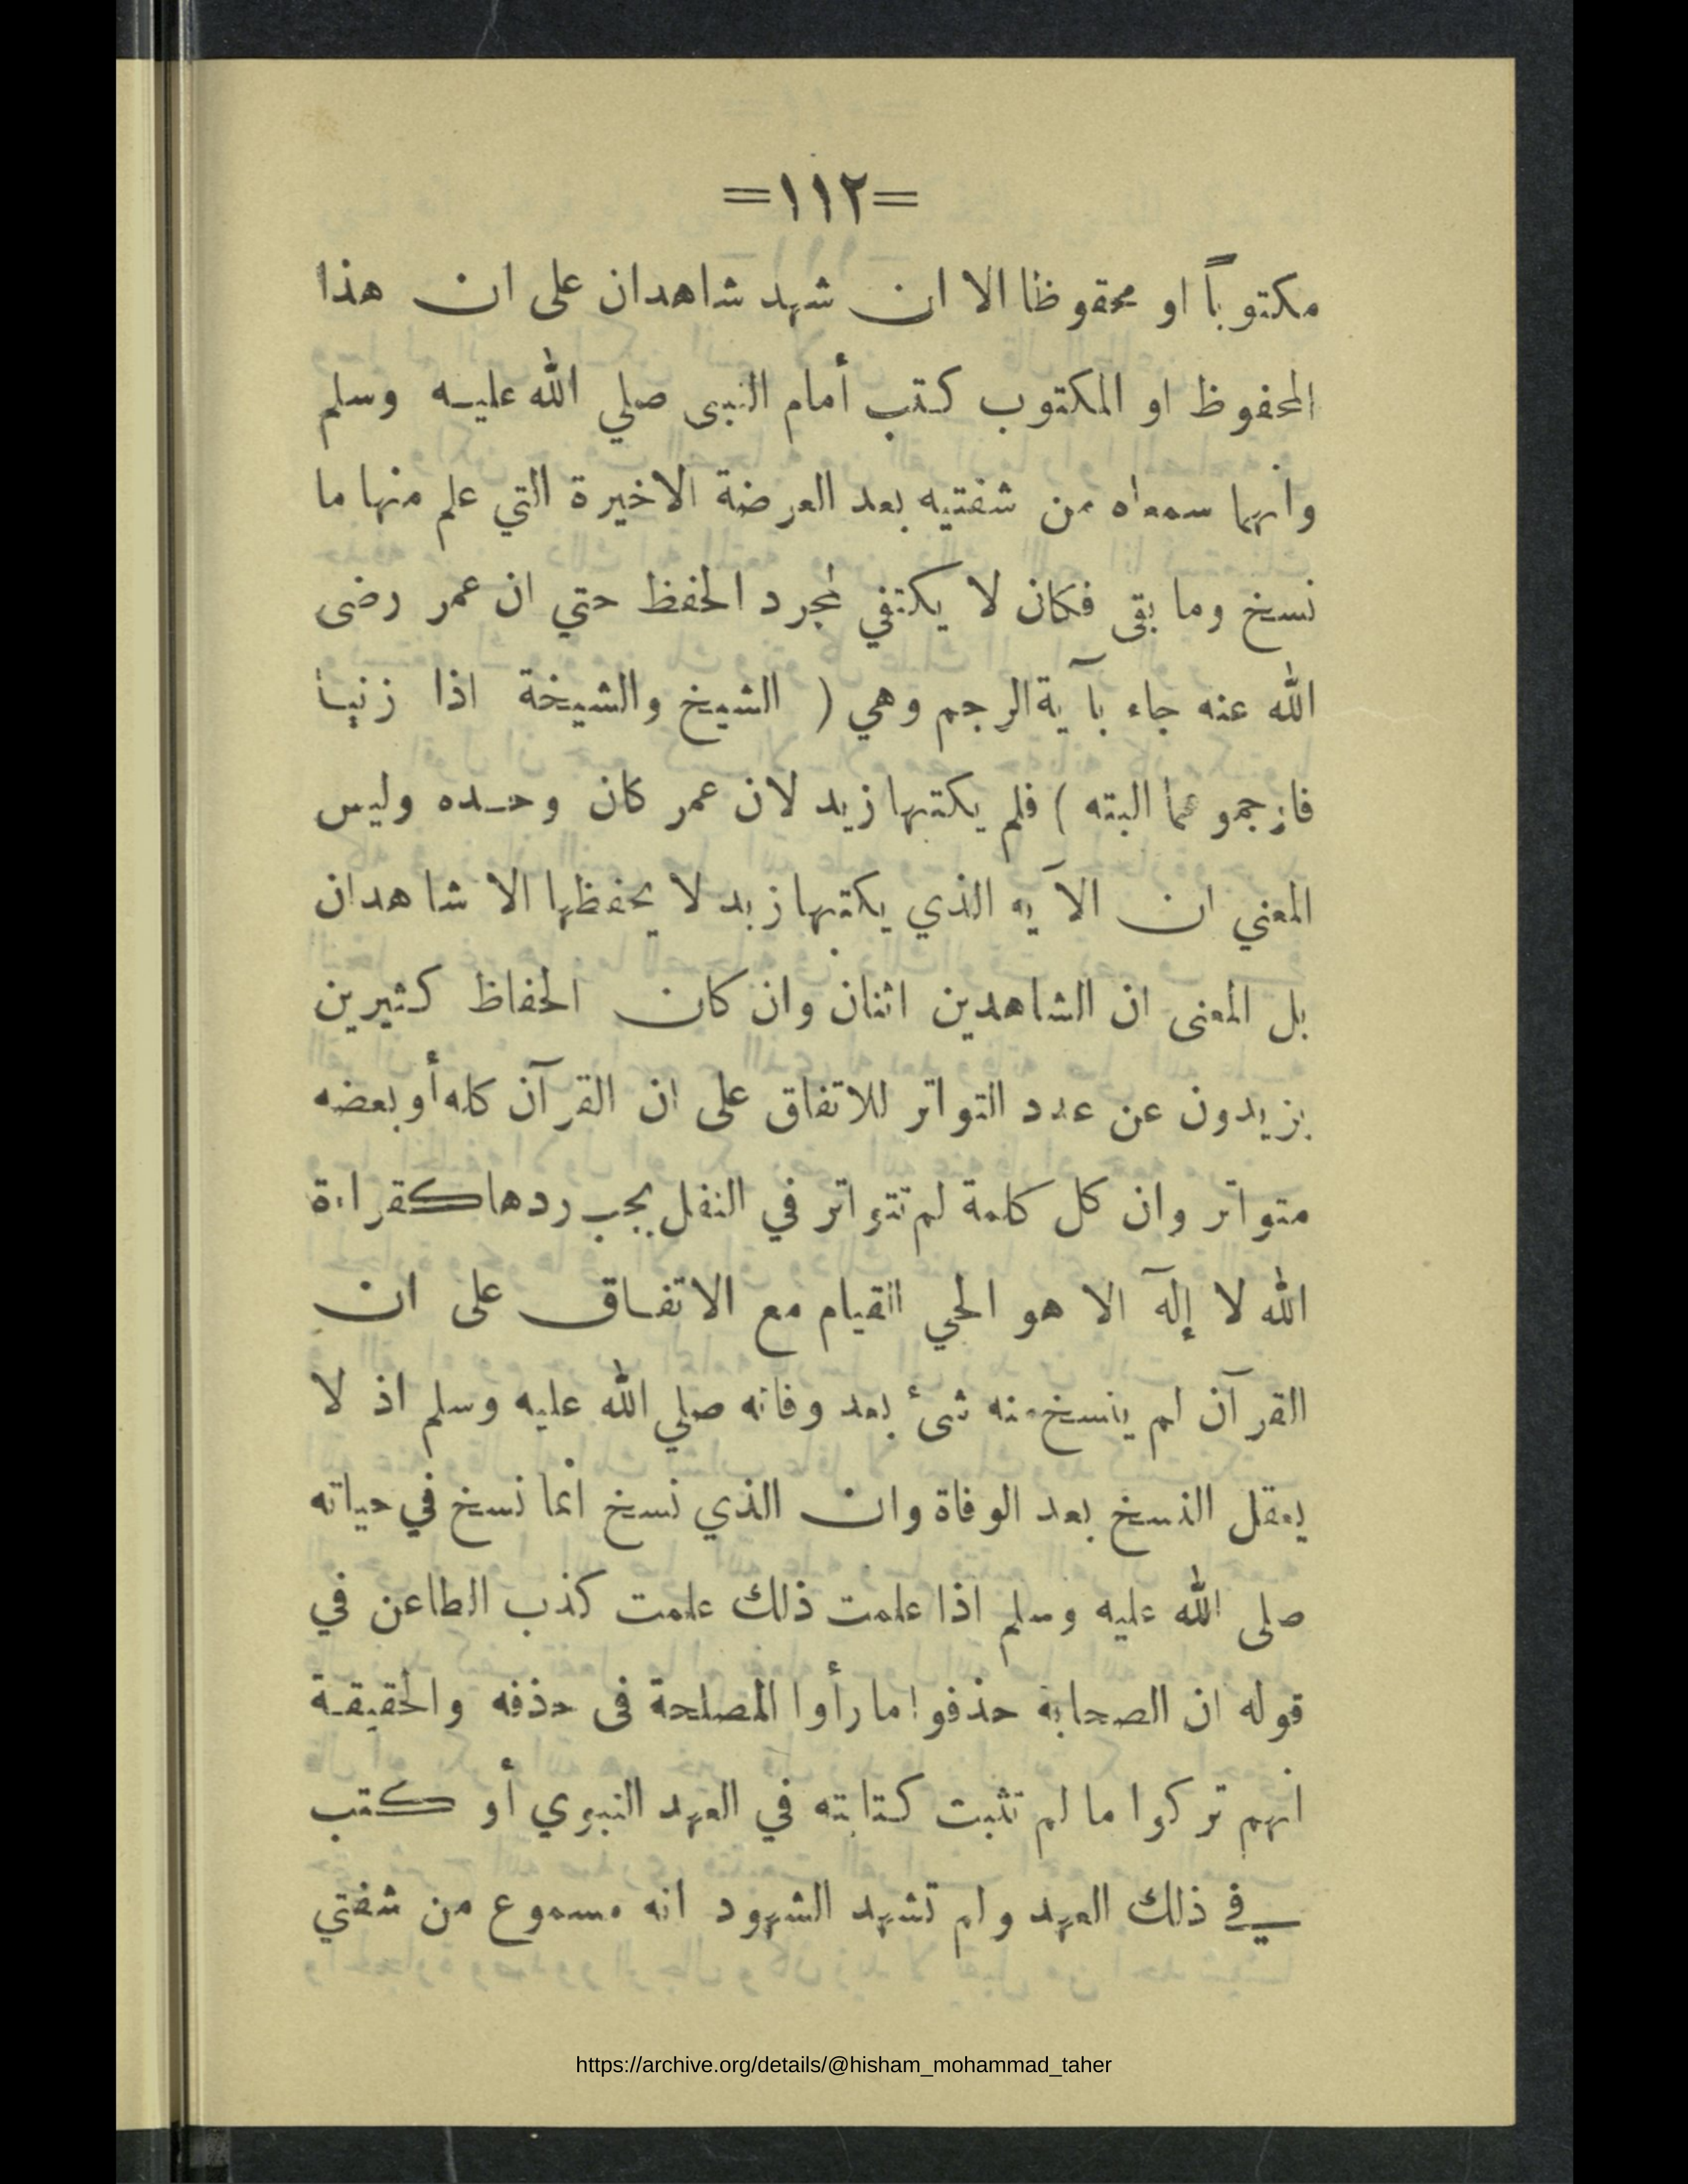 =١١٢=
مكتوباً او محقوظا الا ان شهد شاهدان على ان هذا
المحفوظ او المكتوب كتب أمام النبى صلي الله عليه وسلم
وانهما سمعاه من شفتيه بعد العرضة الاخيرة التي علم منها ما
نسخ وما بقى فكان لا يكتفي لمجرد الحفظ حتي ان عمر رضى
الله عنه جاء بآية الرجم وهي ( الشيخ والشيخة اذا زنيا
فارجموهما البته ) فلم يكتبها زيد لان عمر كان وحده وليس
المعني ان الآيه الذي يكتبها زيد لا يحفظها الا شاهدان
بل المعنى ان الشاهدين اثنان وان كان الحفاظ كثيرين
يزيدون عن عدد التواتر للاتفاق على ان القرآن كله أو بعضه
متواتر وان كل كلمة لم تتواتر في النقل يجب ردها كقراءة
الله لا إلآه الا هو الحي القيام مع الاتفاق على ان
القرآن لم ينسخ منه شئ بعد وفاته صلي الله عليه وسلم اذ لا
يعقل النسخ بعد الوفاة وان الذي نسخ انما نسخ في حياته
صلى الله عليه وسلم اذا علمت ذلك علمت كذب الطاعن في
قوله ان الصحابة حذفوا ما رأوا المصلحة فى حذفه والحقيقة
انهم تركوا ما لم تثبت كتابته في العهد النبوي أو كتب
في ذلك العهد ولم تشهد الشهود انه مسموع من شفتي
https://archive.org/details/@hisham_mohammad_taher